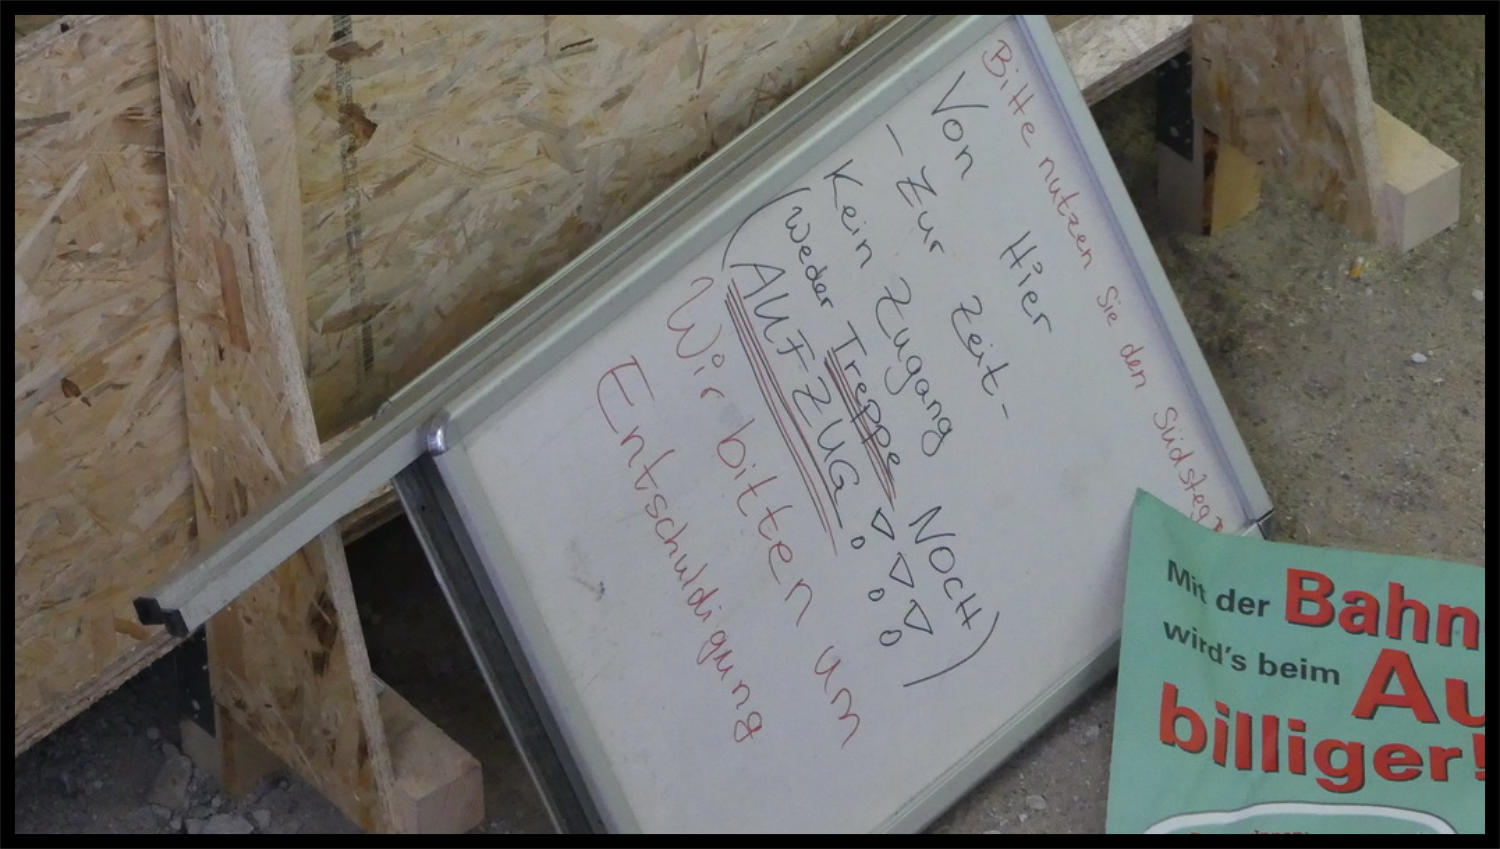 Bitte nutzen Sie den Südsteg
Von Hier
- Zur Zeit -
Kein Zugang
(Weder Treppe NOCH)
AUFZUG !!!
Wir bitten um
Entschuldigung
Mit der Bahn
wird's beim Au
billiger!